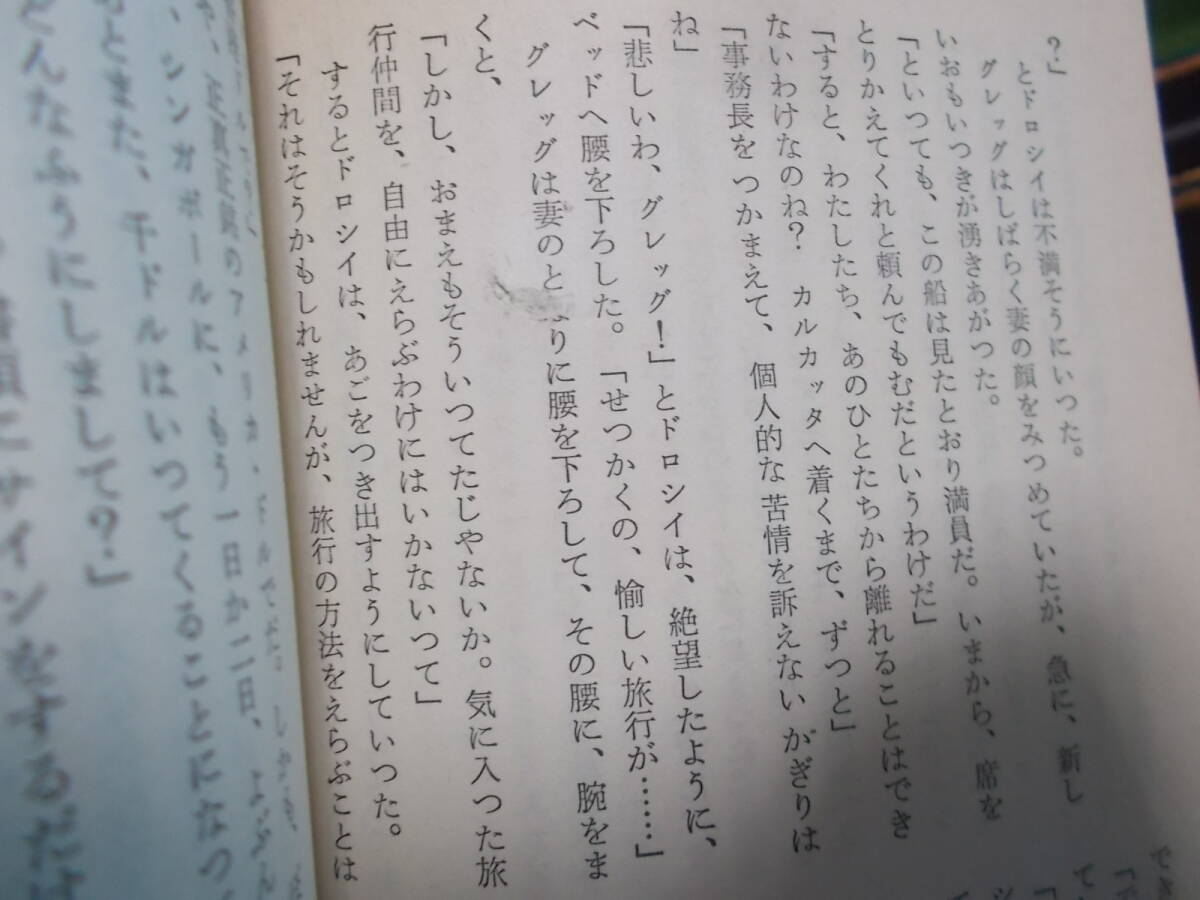 ?」
とドロシイは不満そうにいつた。
グレッグはしばらく妻の顔をみつめていたが、急に、新し
いおもいつきが湧きあがつた。
「といつても、この船は見たとおり満員だ。いまから、席を
とりかえてくれと頼んでもむだというわけだ」
「すると、わたしたち、あのひとたちから離れることはでき
ないわけなのね? カルカッタへ着くまで、ずつと」
「事務長をつかまえて、個人的な苦情を訴えないかぎりは
ね」
「悲しいわ、グレッグ!」とドロシイは、絶望したように、
ベッドへ腰を下ろした。「せつかくの、愉しい旅行が……」
グレッグは妻のと りに腰を下ろして、その腰に、腕をま
くと、
「しかし、おまえもそういつてたじやないか。気に入つた旅
行仲間を、自由にえらぶわけにはいかないつて」
するとドロシイは、あごをつき出すようにしていつた。
「それはそうかもしれませんが、旅行の方法をえらぶことは
正真正銘のアメリカ・ドルでだ。しかも、
、シンガポールに、もう一日か二日、よぶん
もとまた、千ドルはいつてくることになつ
どんなふうにしまして?」
書類にサインをするだけ